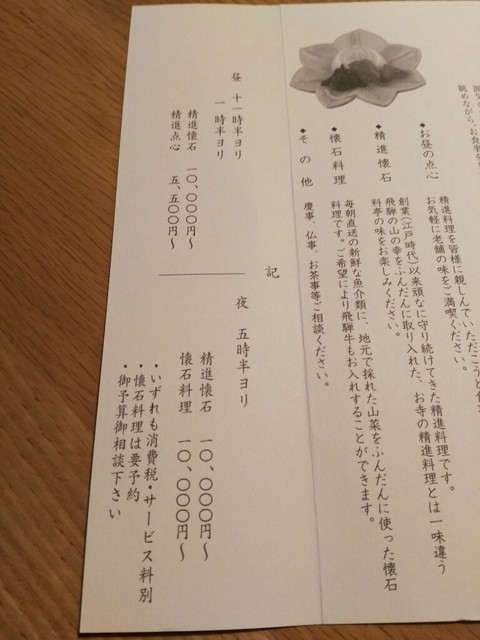 眺めながら、お食事を
◆お昼の点心
精進料理を皆様に親しんでいただこうと
お気軽に老舗の味をご満喫ください。
◆精進懐石
創業(江戸時代)以来頑なに守り続けてきた精進料理です。
飛騨の山の幸をふんだんに取り入れた、お寺の精進料理とは一味違う
料亭の味をお楽しみください。
◆懐石料理
毎朝直送の新鮮な魚介類に、地元で採れた山菜をふんだんに使った懐石
料理です。ご希望により飛騨牛もお入れすることができます。
◆その他
慶事、仏事、お茶事等ご相談ください。
記
昼 十一時半ヨリ
一時半ヨリ
精進懐石 一〇、〇〇〇円〜
精進点心 五、五〇〇円〜
夜 五時半ヨリ
精進懐石 一〇、〇〇〇円〜
懐石料理 一〇、〇〇〇円〜
・いずれも消費税・サービス料別
・懐石料理は要予約
・御予算御相談下さい